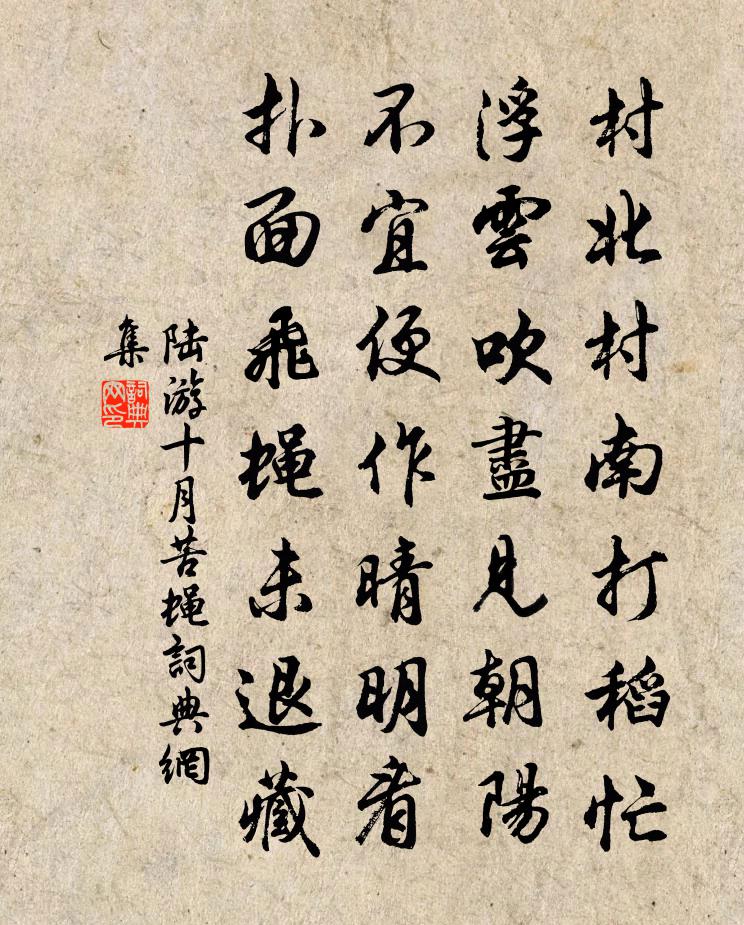 村北村南打稻忙
浮雲吹盡見朝陽
不宜便作晴明看
扑面飛蝇未退藏
陆游十月苦蝇詞典網
集
詞典
网印